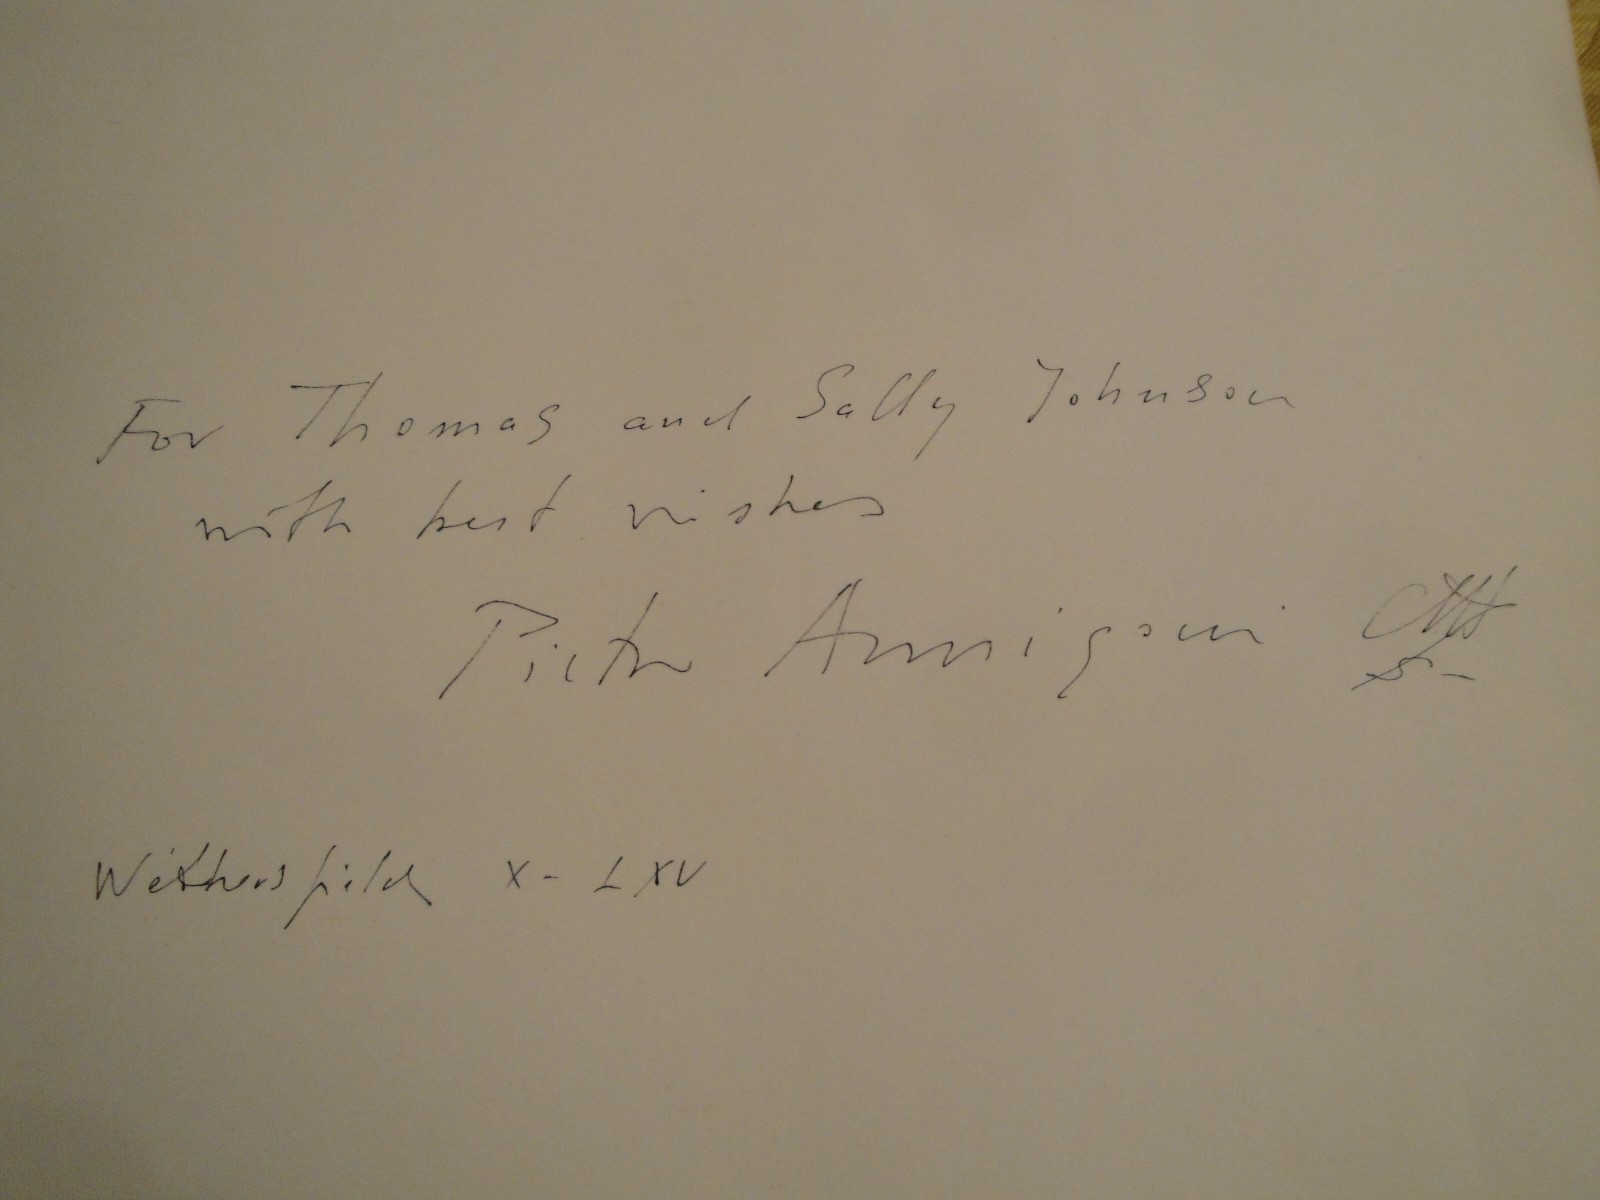 For Thomas and Sally Johnson
with best wishes
Pietro Annigoni
Wethersfield X - LXV